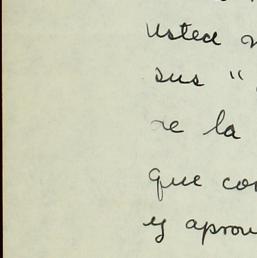 usted
sus "
re la
que con
y aprov